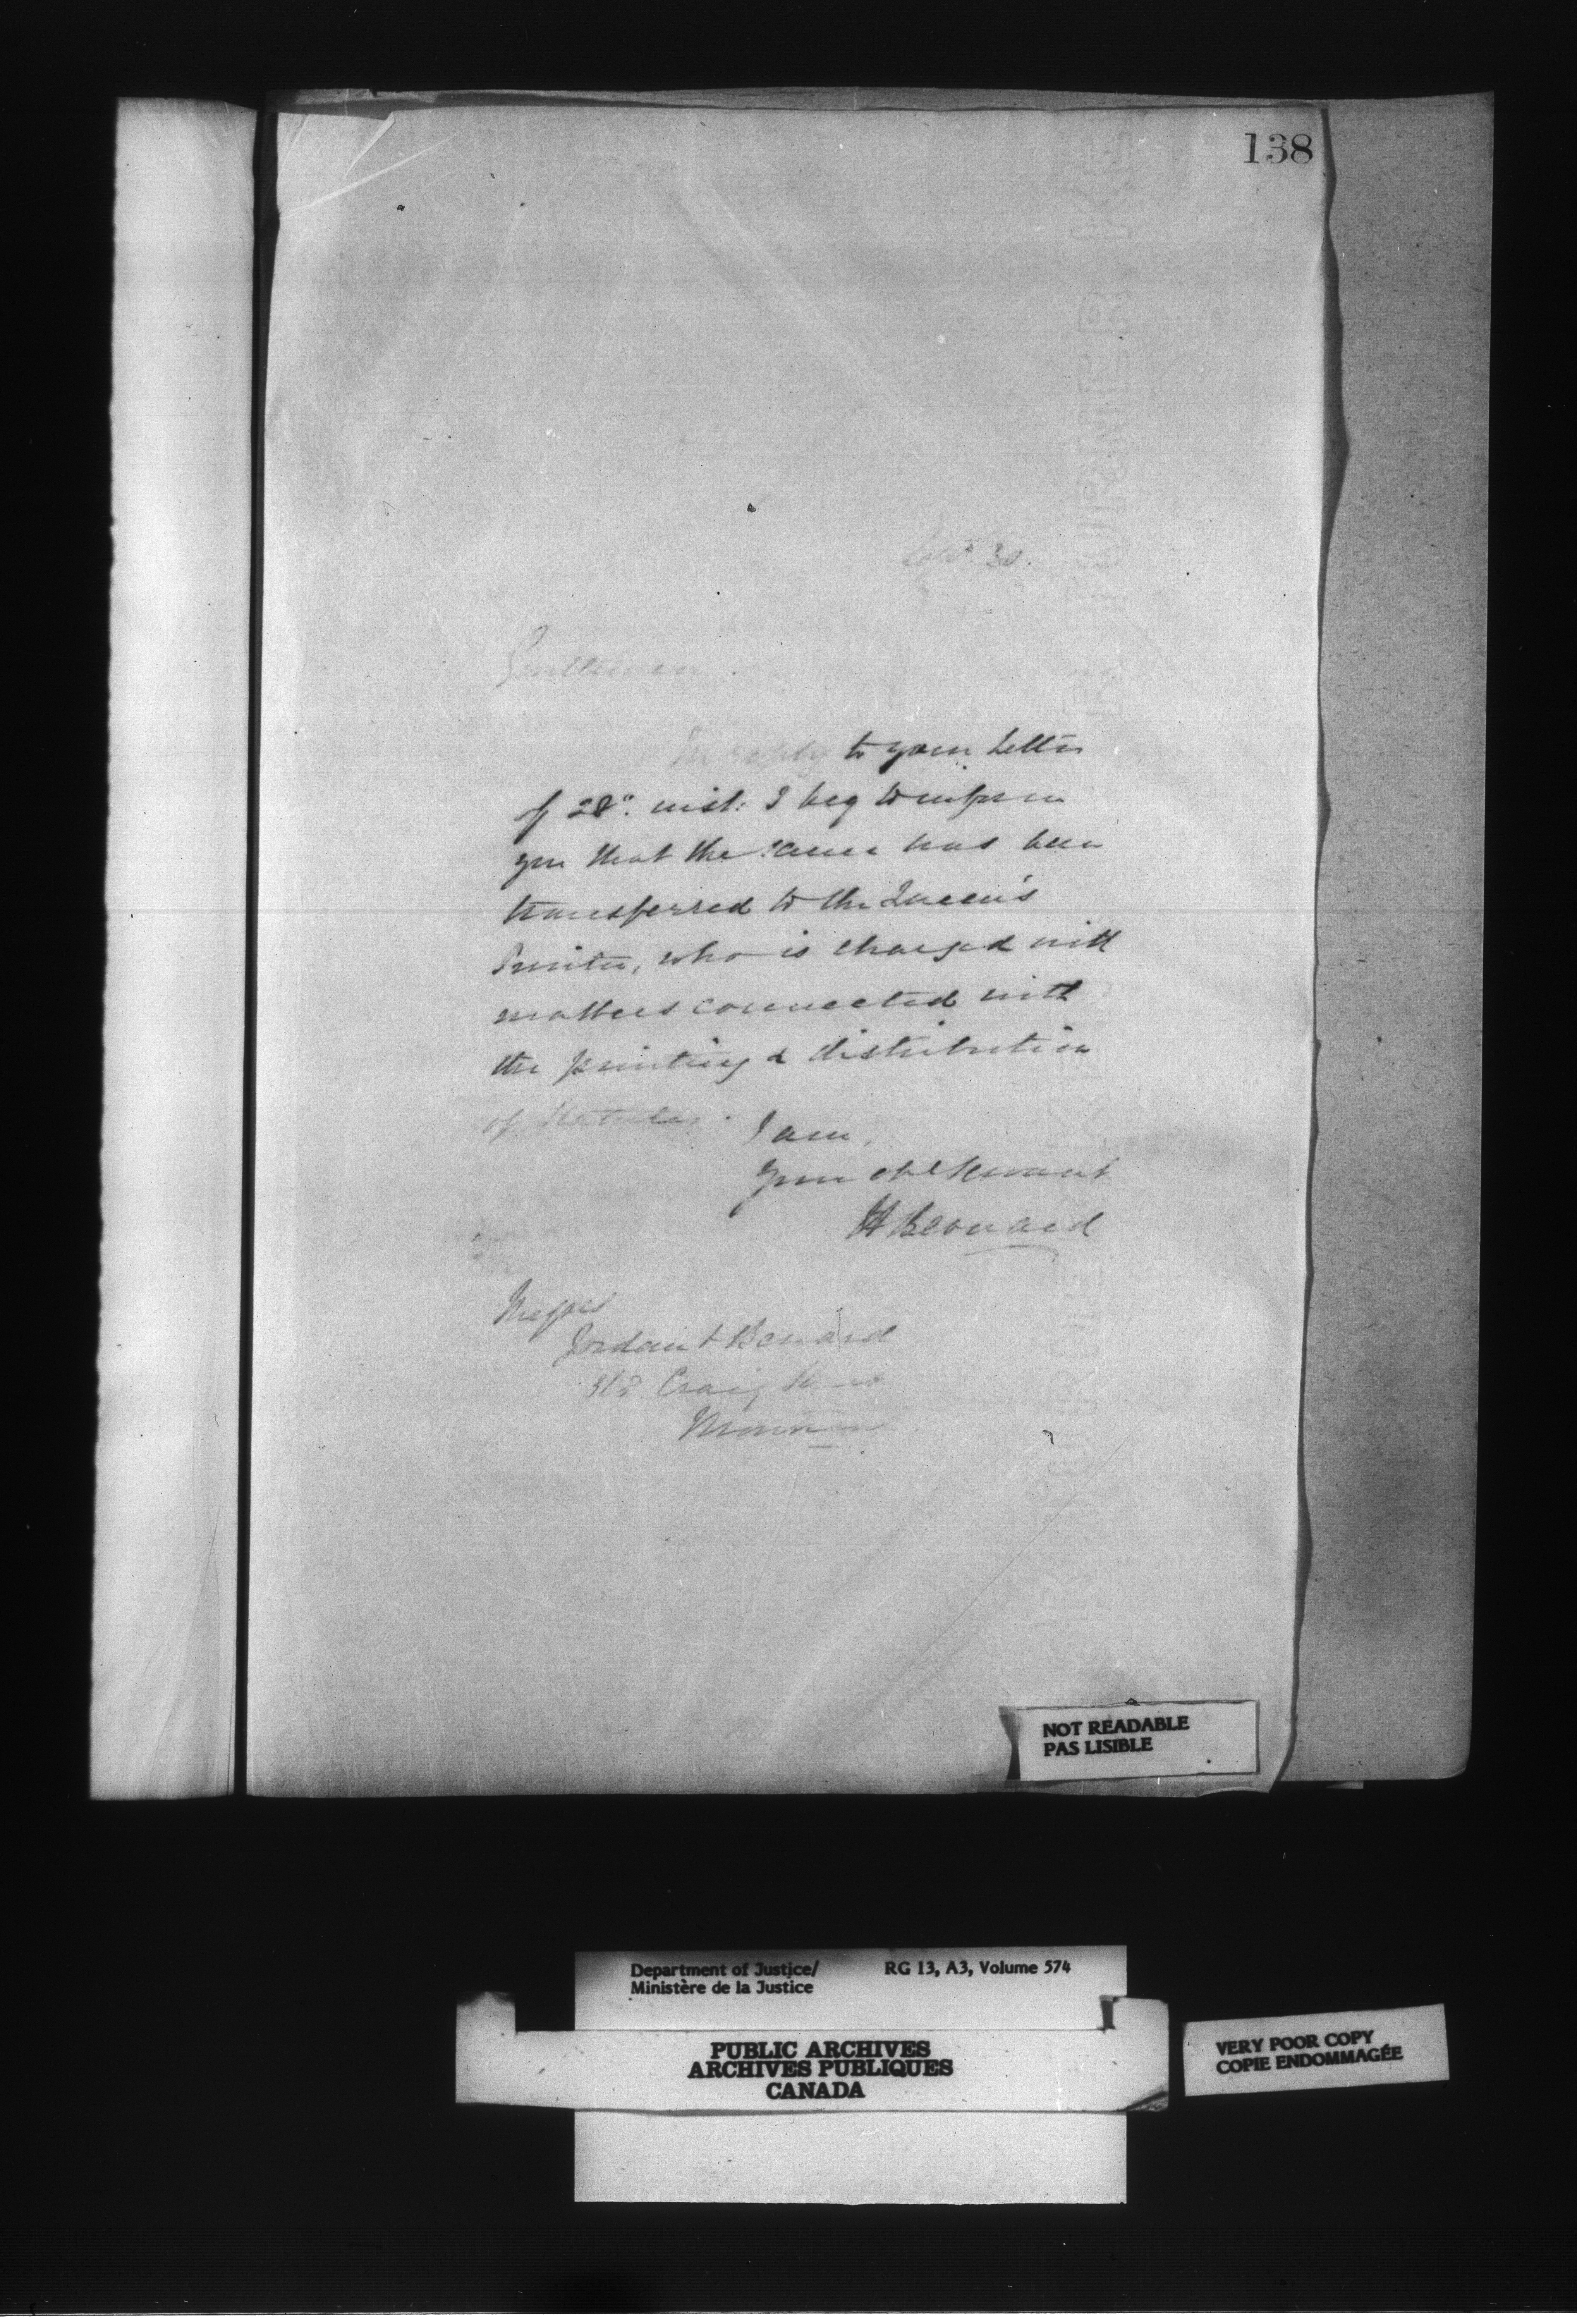 138
Sept. 30.
Gentlemen.
In reply to your letter
of 28th. inst: I beg to inform
you that the same has been
transferred to the Queen's
Printer, who is charged with
matters connected with
the printing & distribution
of Statutes.
I am,
Your obt Servant
H Bernard
Messrs
Jordan & Benard
Craig Street
NOT READABLE
PAS LISIBLE
Department of Justice/ RG 13, A3, Volume 574
Ministère de la Justice
PUBLIC ARCHIVES
ARCHIVES PUBLIQUES
CANADA
VERY POOR COPY
COPIE ENDOMMAGÉE